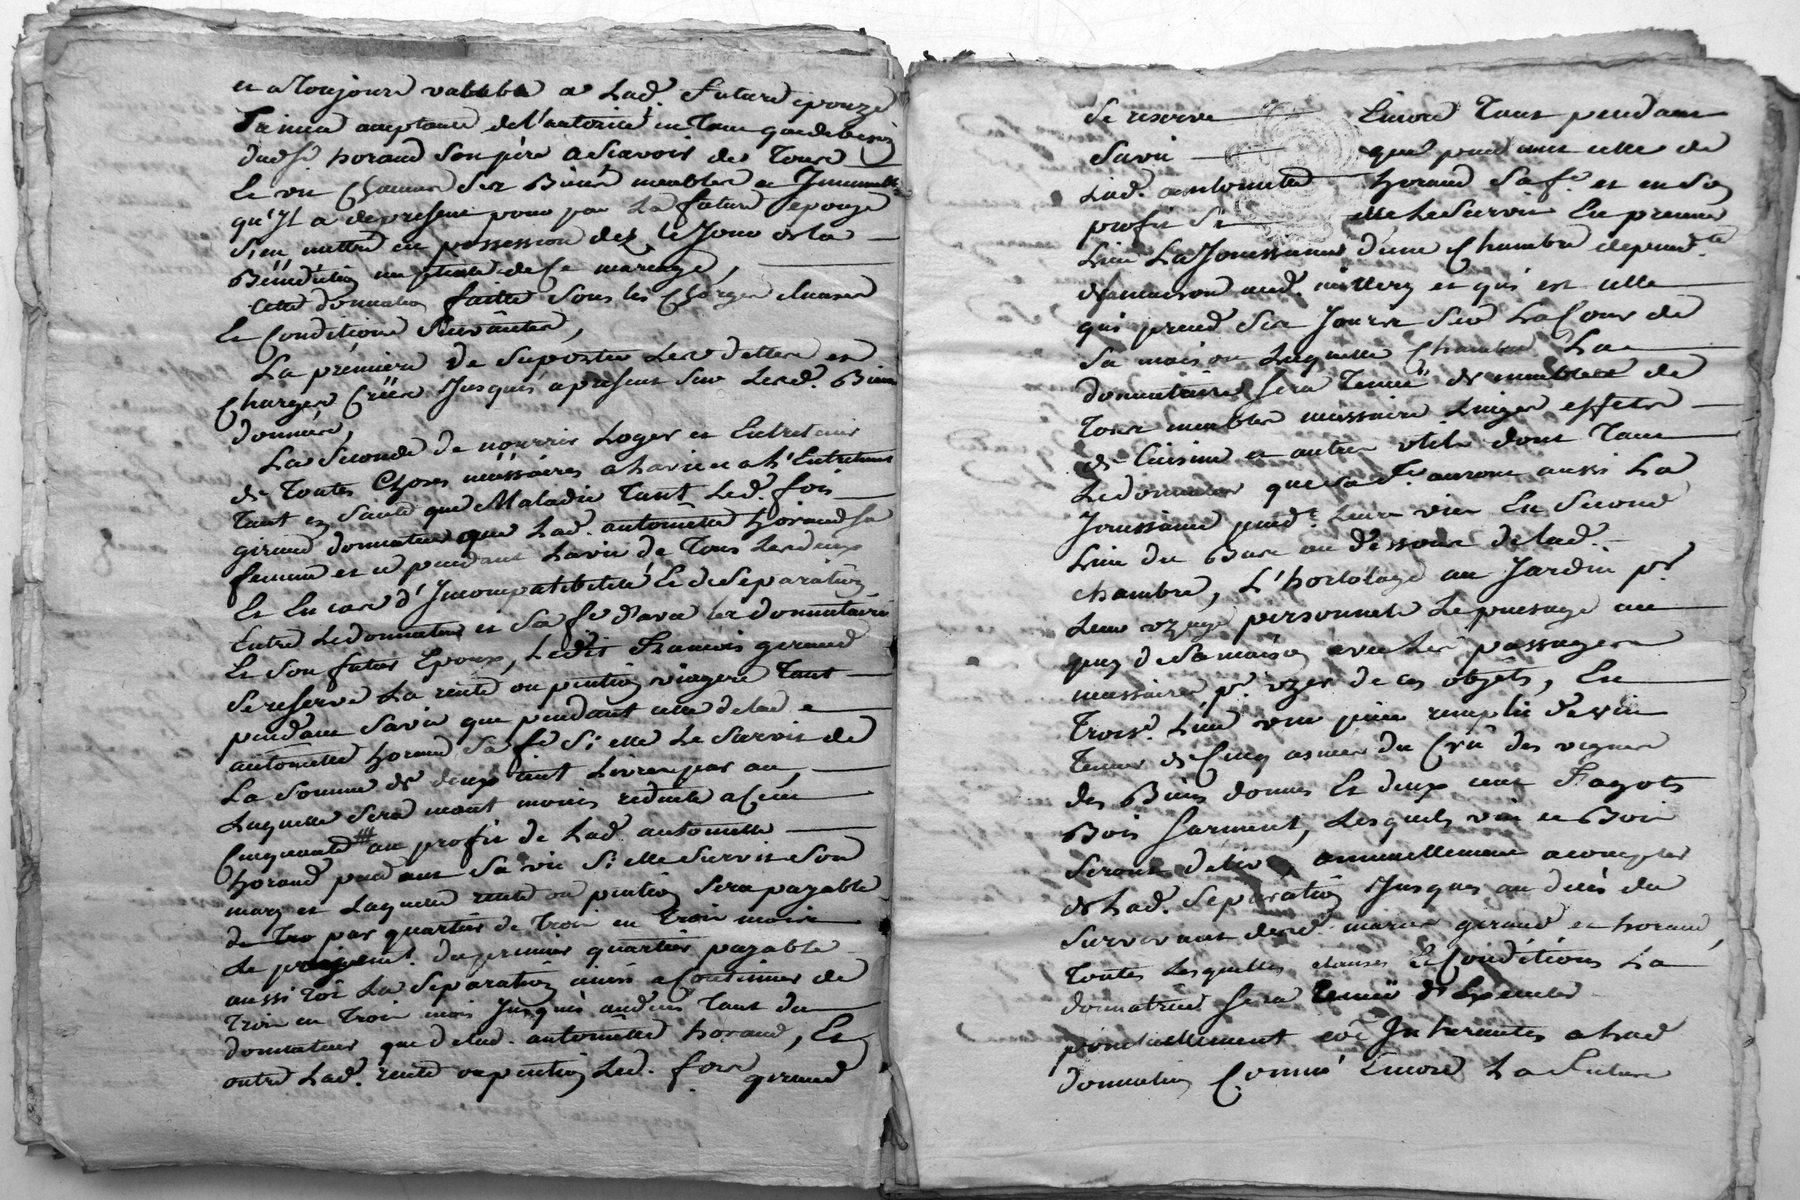 et a toujours valable a Lad. future epouze
acceptante de l'autorité en tant que de besoin
dud Sr horand son père a scavoir de tous
Et un chacuns ses Biens meubles et Immeubles
qu'Il a de present pour par La future epouze
s'en mettre en possession dez le Jour de la
Bénédiction nuptiale de Ce mariage,
Cette donnation faitte sous les Charges clauses
Et Conditions suivantes,
La premiere de suporter Les dettes et
Charges Créés Jusques a present sur Lesd. Biens
donnés,
La seconde de nourrir Loger et Entretenir
de toutes choses nécéssaires a la vie et a L'Entretient
tant en santé que Maladie tant Led. fois
giraud donnateur que Lad. antoinette horand sa
femme et ce pendant La vie de tous Les deux
Et En cas d'Incompatibilité Et de separation
Entre Le donnateur et sa fe d'avec les donnataires
Et son futur Epoux, Ledit François giraud
se reserve La rente ou pention viagere tant
pendant sa vie que pendant celle de lad e
antoinette horand sa fe si elle Le survit de
La somme de deux cent Livres par an,
Laquelle sera néant moins reduite a Cent
Cinquante ## au profit de Lad. antoinette
horand pendant sa vie si elle survit son
mary et Laquelle rente ou pention sera payable
par quartier de trois en trois mois
Le payement du premier quartier payable
aussi tôt La separation ainsi a Continuer de
trois en trois mois Jusqués au deces tant du
donnateur que de lad. antoinette horand, Et
outre Lad. rente ou pention Led. fois giraud
se reserve Encore tant pendant
sa vie que pendant celle de
Lad. antoinette horand sa fe. et en son
profit si elle Le survit En premier
Lieu La Jouissance d'une Chambre dependte.
de sa maison aud. millery et qui est celle
qui prend ses Jours sur La Cour de
sa maison Laquelle Chambre La
donnataire sera tenue de meubler de
tous meubles nécessaires Linges effets
de Cuisine et autres utils dont tant
Le donnateur que sa fe. auront aussi La
Jouissance pendt. Leurs vies En second
Lieu du Bas au dessous de lad.
chambre, L'hortolage au Jardin pr.
Leur uzage personnels Le puisage au
puy de sa maison avec Les passages
nécessaires pr. uzer de ces objéts, En
trois. Lieu une piece remplie de vin
tenue de Cinq asnées du Crû des vignes
des Biens donnés Et deux cent Fagots
Bois sarment, Lesquels vin et Bois
seront délivrés annuellement a compter
de Lad. separation Jusques au décès du
survivant desd. mariés giraud et horand,
toutes Lesquelles clauses Et Conditions La
donnatrice sera tenue d'Exécuter
ponctuellement Inhérantes a Lad
donnation Comme Encore La future